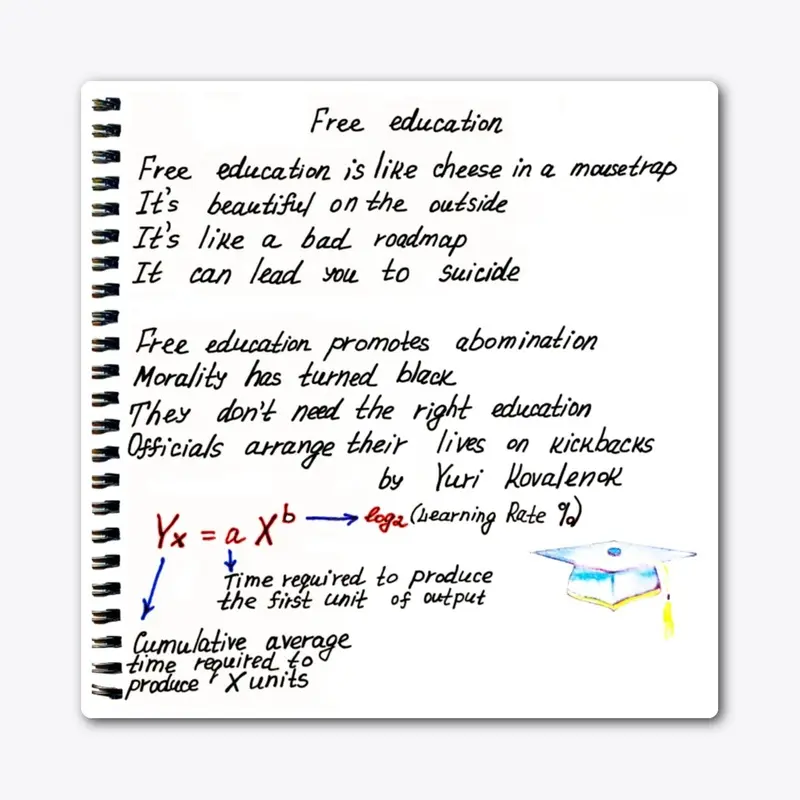 Free education
Free education is like cheese in a mousetrap
It's beautiful on the outside
It's like a bad roadmap
It can lead you to suicide
Free education promotes abomination
Morality has turned black
They don't need the right education
Officials arrange their lives on kickbacks
by Yuri Kovalenok
Yx = a X^b → log2 (Learning Rate %)
Time required to produce
the first unit of output
Cumulative average
time required to
produce X units